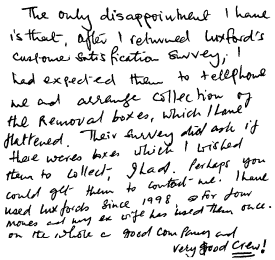 The only disappointment I have
is that, after I returned Luxford's
customer satisfication survey, I
had expected them to tellphone
me and arrange collection of
the Removal boxes, which I have
flattened. Their survey did ask if
there weres boxes which I wished
them to collect, I had. Perhaps you
could get them to contact me. I have
used Luxfords since 1998 for four
moves and my ex wife has used them once.
on the whole a good company and
very good Crew!